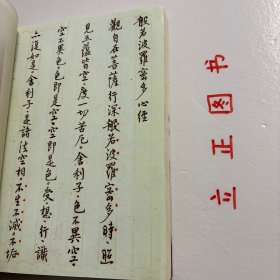 般若波羅蜜多心經
觀自在菩薩行深般若波羅蜜多時,照
見五蘊皆空,度一切苦厄,舍利子,色不異空,
空不異色,色即是空,空即是色,受,想,行,識
亦復如是,舍利子,是諸法空相,不生,不滅,不垢
立正图书